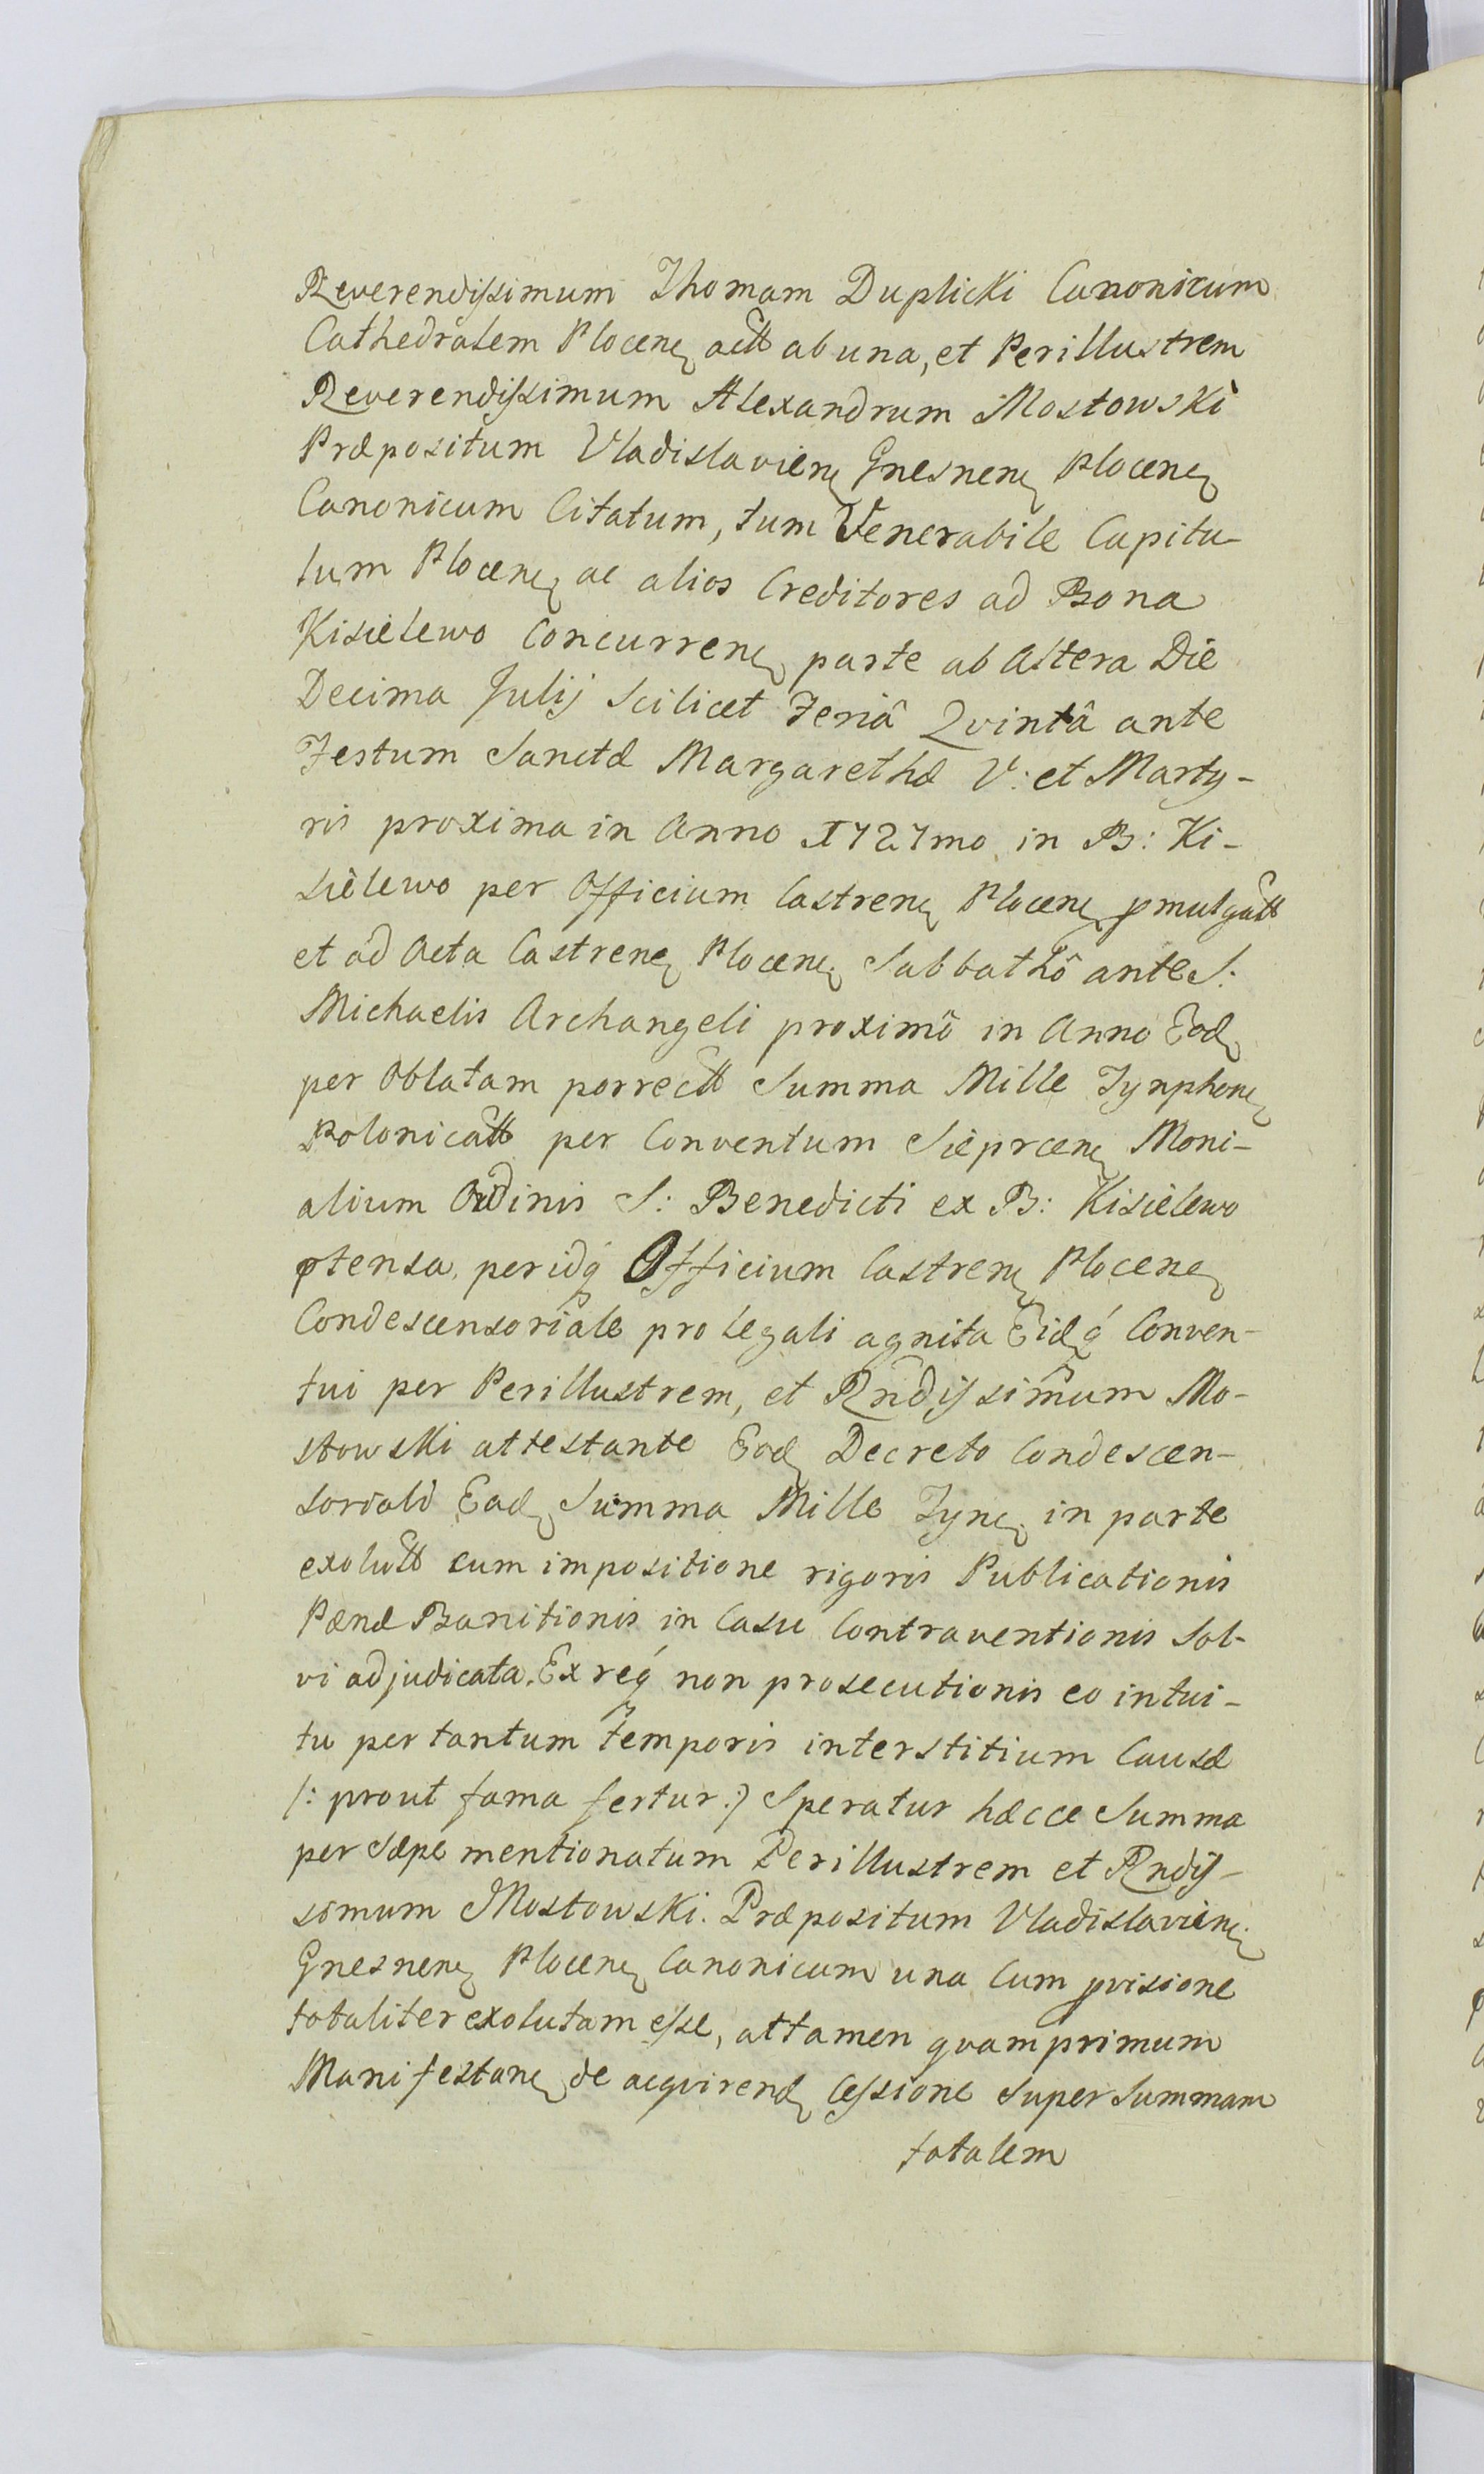 Reverendissimum Thomam Duplicki Canonicum
Cathedralem Plocen actt ab una, et Perillustrem
Reverendissimum Alexandrum Mostowski
Præpositum Vladislavien Gnesnen Plocen
Canonicum Citatum, tum Venerabile Capitu-
lum Plocen ac alios Creditores ad Bona
Kisielewo Concurren parte ab altera Die
Decima Julij Scilicet Feriâ Qvintâ ante
Festum Sanctæ Margarethæ V: et Marty-
ris proxima in Anno 1727mo in B: Ki-
sielewo per Officium Castren Plocen pmulgatt
et ad Acta Castren Plocen Sabbathô ante S:
Michaelis Archangeli proximô in Anno Eod
per Oblatam porrectt Summa Mille Tynphen
Polonicatt per Conventum Sieprcen Moni-
alium Ordinis S: Benedicti ex B: Kisielewo
ptensa, per idq Officium Castren Plocen
Condescensoriale pro legali agnita Eidq Conven-
tui per Perillustrem, et Rndissimum Mo-
stowski attestante Eod Decreto Condescen-
soriali Ead Summa Mille Tyn in parte
exolutt cum impositione rigoris Publicationis
Pænæ Banitionis in Casu Contraventionis Sol-
vi adjudicata. Ex reg non prosecutionis eo intui-
tu per tantum temporis interstitium Causæ
/: prout fama fertur :/ Speratur hæcce Summa
per Sæpe mentionatum Perillustrem et Rndis-
simum Mostowski. Præpositum Vladislavien
Gnesnen Plocen Canonicum una Cum pvisione
totaliter exolutam esse, attamen qvamprimum
Manifestan de acqvirend Cessione Super Summam
totalem